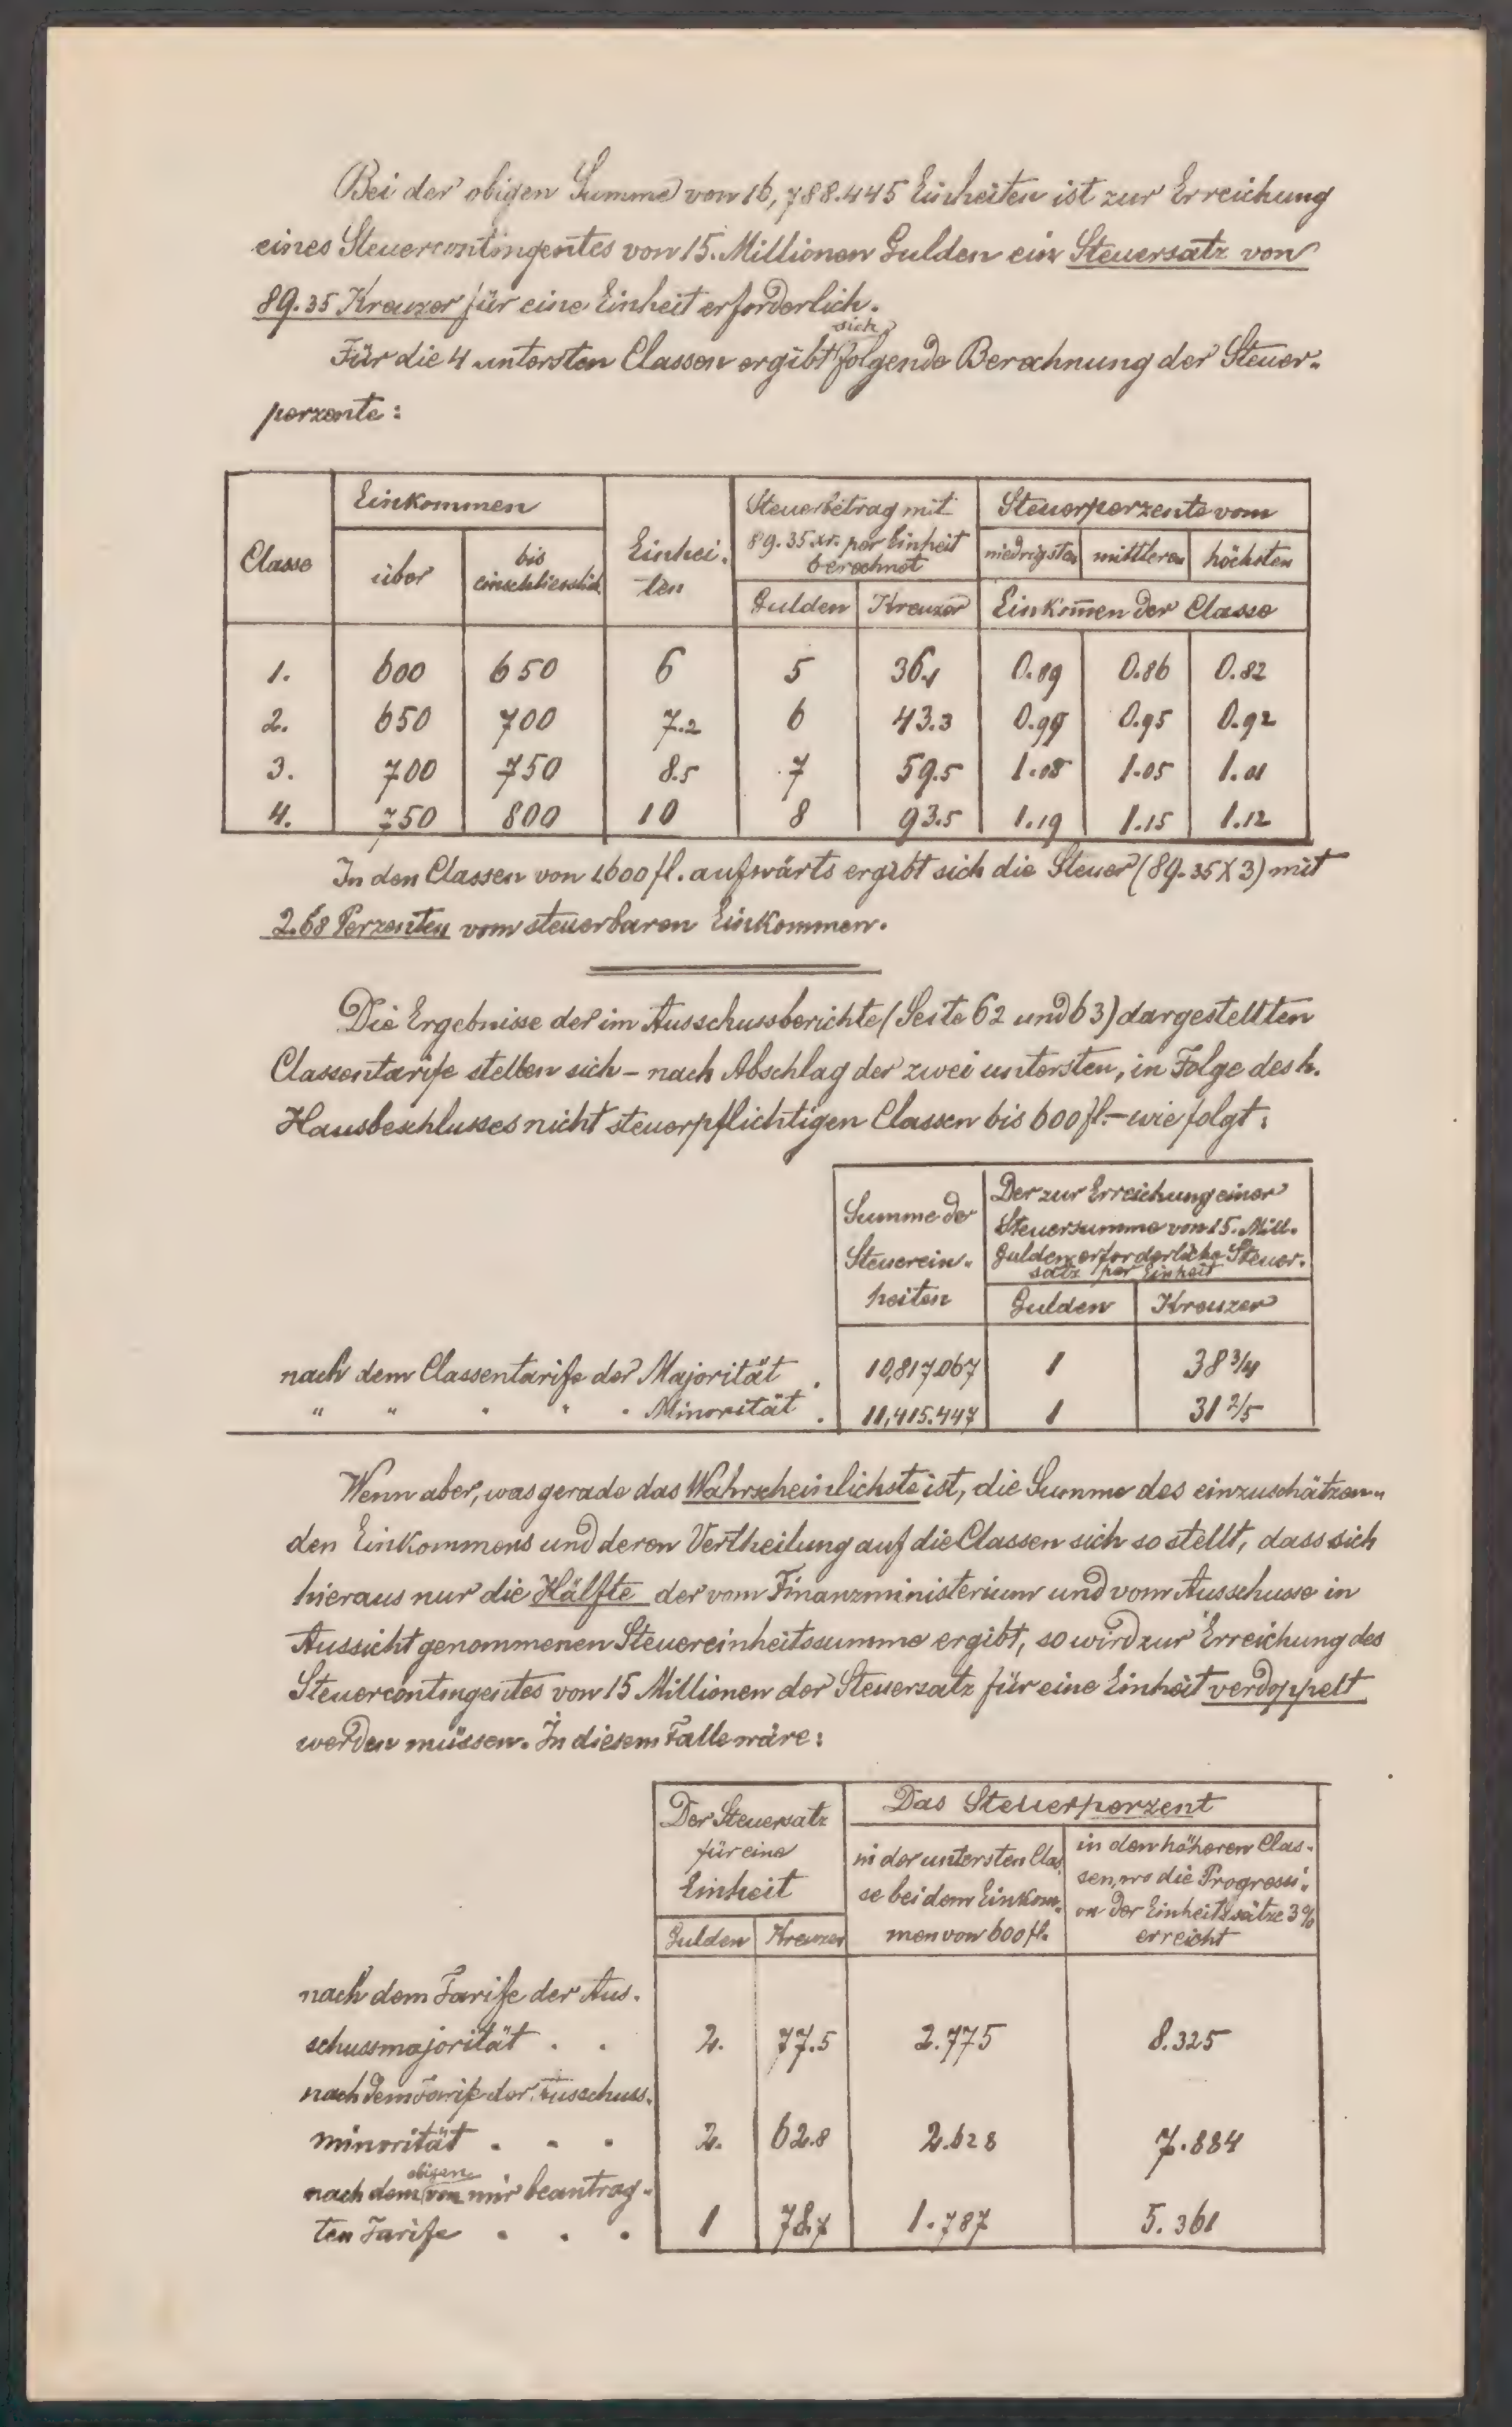 Bei der obigen Summe von 16,788.445 Einheiten ist zur Erreichung
eines Steuercontingentes von 15. Millionen Gulden ein Steuersatz von
89.35 Kreuzer für eine Einheit erforderlich.
Für die 4 untersten Classen ergibt sich folgende Berechnung der Steuer-
perzente:
Classe | Einkommen | Einhei- | Steuerbetrag mit | Steuerperzente vom
über | bis | ten | 89.35 xr. per Einheit | niedrigsten | mittleren | höchsten
einschliesslich | berechnet
Gulden | Kreuzer | Einkom̄en der Classe
1. | 600 | 650 | 6 | 5 | 36.1 | 0.89 | 0.86 | 0.82
2. | 650 | 700 | 7.2 | 6 | 43.3 | 0.99 | 0.95 | 0.92
3. | 700 | 750 | 8.5 | 7 | 59.5 | 1.08 | 1.05 | 1.01
4. | 750 | 800 | 10 | 8 | 93.5 | 1.19 | 1.15 | 1.12
In den Classen von 1600 fl. aufwärts ergibt sich die Steuer (89.35 X 3) mit
2.68 Perzenten vom steuerbaren Einkommen.
Die Ergebnisse der im Ausschussberichte (Seite 62 und 63) dargestellten
Classentarife stellen sich – nach Abschlag der zwei untersten, in Folge des h.
Hausbeschlusses nicht steuerpflichtigen Classen bis 600 fl. – wie folgt:
Summe der | Der zur Erreichung einer
Steuerein- | Steuersumme von 15. Mill.
heiten | Gulden erforderliche Steuer-
satz per Einheit
Gulden | Kreuzer
nach dem Classentarife der Majorität . | 10,817.067 | 1 | 38 3/4
" " " " " Minorität . | 11,415.447 | 1 | 31 2/5
Wenn aber, was gerade das Wahrscheinlichste ist, die Summe des einzuschätzen-
den Einkommens und deren Vertheilung auf die Classen sich so stellt, dass sich
hieraus nur die Hälfte der vom Finanzministerium und vom Ausschusse in
Aussicht genommenen Steuereinheitssumme ergibt, so wird zur Erreichung des
Steuercontingentes von 15 Millionen der Steuersatz für eine Einheit verdoppelt
werden müssen. In diesem Falle wäre:
Der Steuersatz | Das Steuerperzent
für eine | in der untersten Clas- | in den höheren Clas-
Einheit | se bei dem Einkom- | sen, wo die Progressi-
Gulden | Kreuzer | men von 600 fl. | on der Einheitssätze 3%
erreicht
nach dem Tarife der Aus-
schussmajorität . . | 2. | 77.5 | 2.775 | 8.325
nach dem Tarife der Ausschuss-
minorität . . . | 2. | 62.8 | 2.628 | 7.884
nach dem obigen von mir beantrag-
ten Tarife . . . | 1 | 78.7 | 1.787 | 5.361